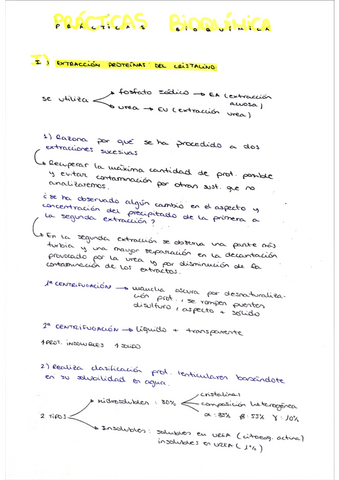 PRÁCTICAS BIOQUÍMICA
PRÁCTICAS BIOQUÍMICA
I) EXTRACCIÓN PROTEÍNAS DEL CRISTALINO
se utiliza
fosfato sódico → EA (extracción acuosa)
urea → EU (extracción urea)
1) Razona por qué se ha procedido a dos
extracciones sucesivas
Recuperar la máxima cantidad de prot. posible
y evitar contaminación por otras sust. que no
analizaremos.
¿se ha observado algún cambio en el aspecto y
concentración del precipitado de la primera a
la segunda extracción?
En la segunda extracción se observa una parte más
turbia y una mayor separación en la decantación
provocado por la urea y por disminución de la
contaminación de los extractos.
1ª CENTRIFUGACIÓN → mancha oscura por desnaturaliza-
ción prot., se rompen puentes
disulfuro, aspecto + sólido
2ª CENTRIFUGACIÓN → líquido + transparente
PROT. INSOLUBLES SOLIDO
2) Realiza clasificación prot. lenticulares basándote
en su solubilidad en agua.
2 TIPOS
Hidrosolubles: 80%
cristalinas
composición heterogénea
α: 35% β: 55% γ: 10%
Insolubles: solubles en UREA (citoesq. actina)
insolubles en UREA (1%)